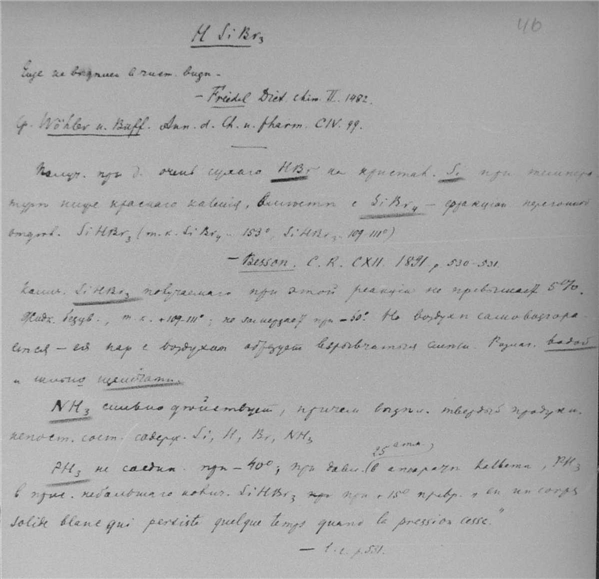 46
H Si Br₃
Еще не выделен в чист. виде.
— Friedel Dict. chim. II. 1482.
Cf. Wöhler u. Buff. Ann. d. Ch. u. Pharm. CIV. 99.
Получ. при д. очень сухаго HBr на кристал. Si при темпера
туре ниже краснаго каленія, вместе с SiBr₄ — фракцион. перегонкой
отделя. SiHBr₃ (т. к. SiBr₄ - 153°, SiHBr₃ - 109-111°)
— Besson. C. R. CXII. 1891 p. 530-531.
Колич. SiHBr₃ получаемаго при этой реакціи не превышает 5%.
Жидк. безцв., т. к. +109-111°; не затвердает при -60°. На воздухе самовозгора
ется — его пар с воздухом образует взрывчатыя смеси. Разлаг. водой
и щелочами.
NH₃ сильно действует, причем выдел. твердый продукт
непост. сост. содерж. Si, H, Br, NH₃
PH₃ не соедин. при -40°; при давл. 25 atm. (в аппарате Кальете, PH₃
в прис. небольшаго колич. SiHBr₃ при +15° превр. „en un corps
solide blanc qui persiste quelque temps quand la pression cesse."
— l. c. p. 531.